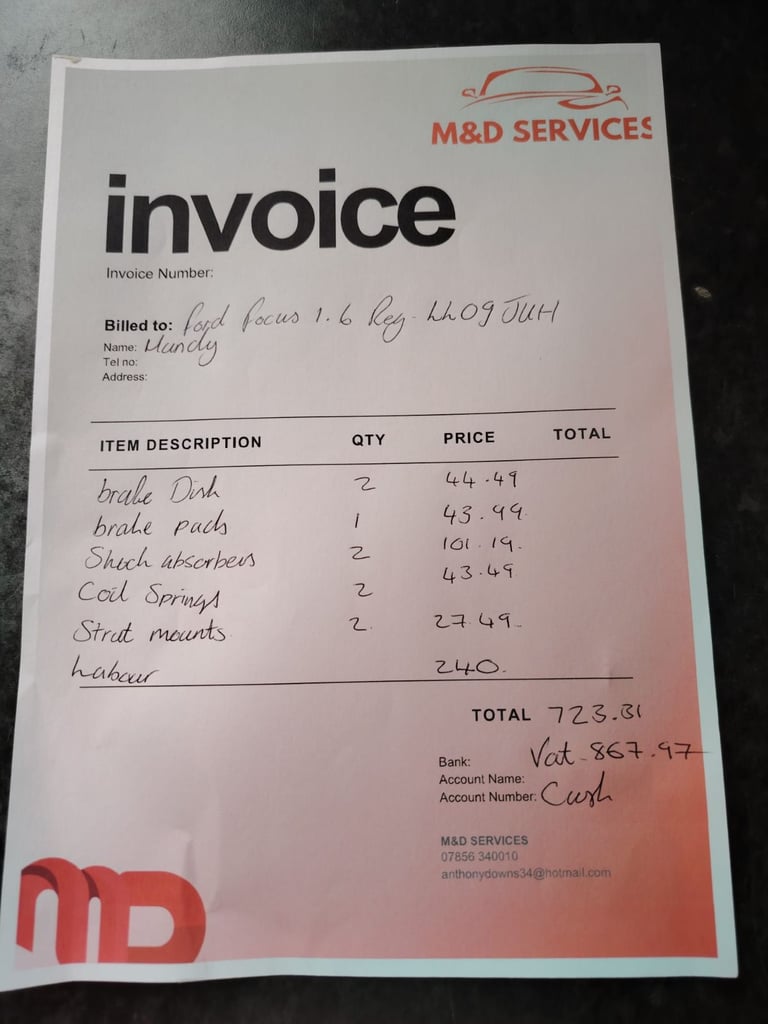 M&D SERVICES
invoice
Invoice Number:
Billed to: Ford Focus 1.6 Reg - LL09 JUH
Name: Mandy
Tel no:
Address:
ITEM DESCRIPTION QTY PRICE TOTAL
brake Disk 2 44.49
brake pads 1 43.99.
Shock absorbers 2 101.19.
Coil Springs 2 43.49
Strut mounts. 2. 27.49.
Labour 240.
TOTAL 723.31
Bank: Vat - 867.97
Account Name:
Account Number: Cash
M&D SERVICES
07856 340010
anthonydowns34@hotmail.com